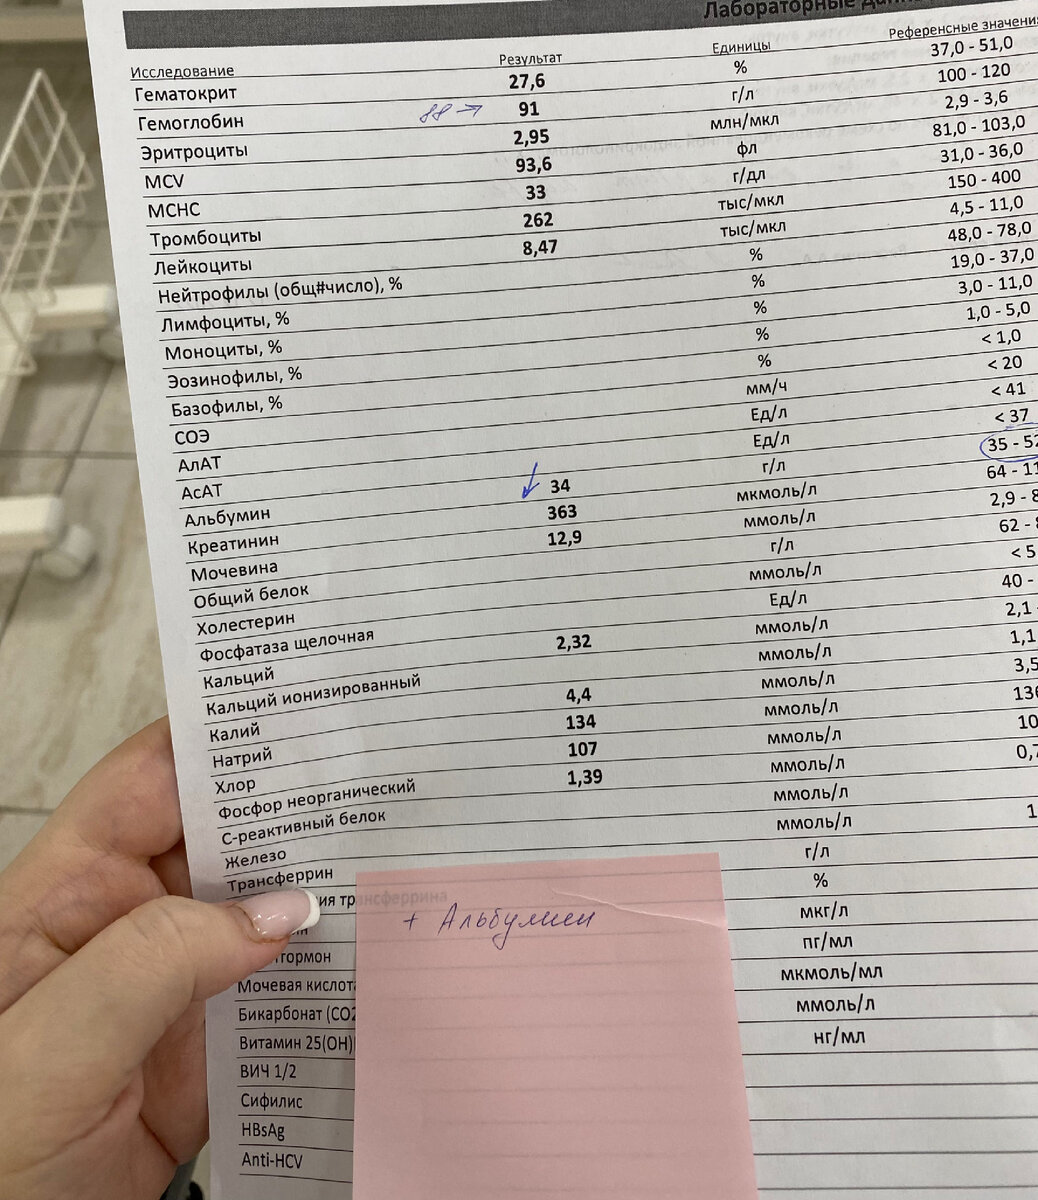 Лабораторные данные
Исследование Результат Единицы Референсные значения
Гематокрит 27,6 % 37,0 - 51,0
Гемоглобин 88 → 91 г/л 100 - 120
Эритроциты 2,95 млн/мкл 2,9 - 3,6
MCV 93,6 фл 81,0 - 103,0
МСНС 33 г/дл 31,0 - 36,0
Тромбоциты 262 тыс/мкл 150 - 400
Лейкоциты 8,47 тыс/мкл 4,5 - 11,0
Нейтрофилы (общ#число), % % 48,0 - 78,0
Лимфоциты, % % 19,0 - 37,0
Моноциты, % % 3,0 - 11,0
Эозинофилы, % % 1,0 - 5,0
Базофилы, % % < 1,0
СОЭ мм/ч < 20
АлАТ Ед/л < 41
АсАТ Ед/л < 37
Альбумин 34 г/л 35 - 52
Креатинин 363 мкмоль/л 64 - 11
Мочевина 12,9 ммоль/л 2,9 - 8
Общий белок г/л 62 -
Холестерин ммоль/л < 5
Фосфатаза щелочная Ед/л 40 -
Кальций 2,32 ммоль/л 2,1 -
Кальций ионизированный ммоль/л 1,1
Калий 4,4 ммоль/л 3,5
Натрий 134 ммоль/л 136
Хлор 107 ммоль/л 10
Фосфор неорганический 1,39 ммоль/л 0,7
С-реактивный белок ммоль/л
Железо ммоль/л 1
Трансферрин г/л
ия трансферрина %
ин мкг/л
тгормон пг/мл
Мочевая кислота мкмоль/мл
Бикарбонат (CO2 ммоль/л
Витамин 25(OH) нг/мл
ВИЧ 1/2
Сифилис
HBsAg
Anti-HCV
+ Альбумин